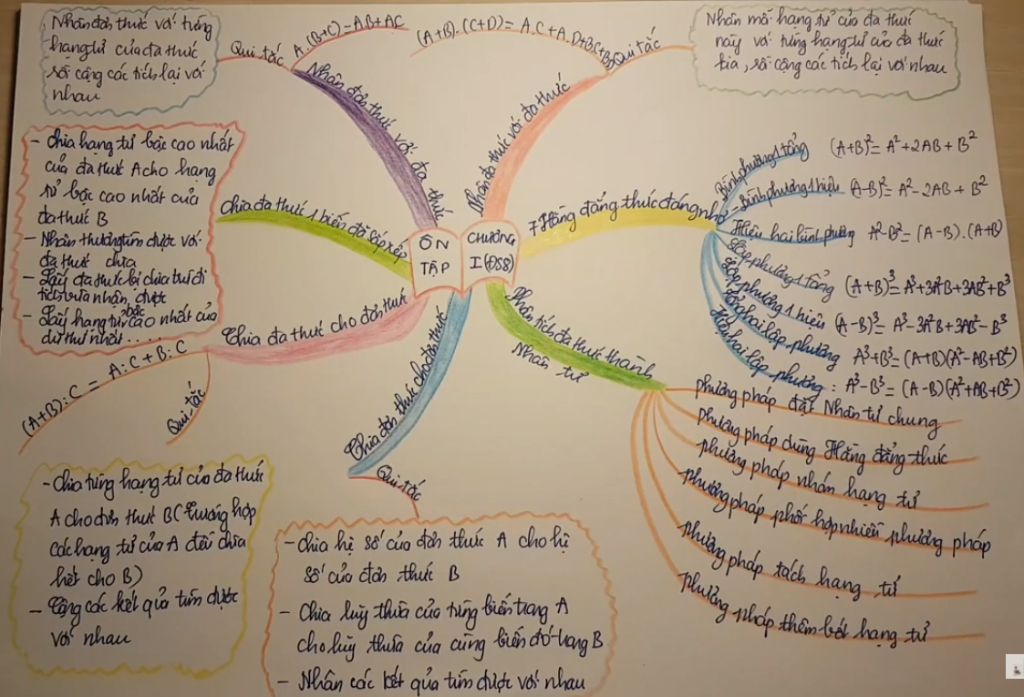 Nhân đơn thức với từng
hạng tử của đa thức
rồi cộng các tích lại với
nhau
Qui tắc
A.(B+C)=AB+AC
Nhân đơn thức với đa thức
(A+B).(C+D)= A.C+A.D+BC+BD
Qui tắc
Nhân đa thức với đa thức
Nhân mỗi hạng tử của đa thức
này với từng hạng tử của đa thức
kia, rồi cộng các tích lại với nhau
ÔN
TẬP
CHƯƠNG
I (ĐS8)
7 Hằng đẳng thức đáng nhớ
Bình phương 1 tổng (A+B)²= A²+2AB+B²
Bình phương 1 hiệu (A-B)²= A²-2AB+B²
Hiệu hai bình phương A²-B²= (A-B).(A+B)
Lập phương 1 tổng (A+B)³= A³+3A²B+3AB²+B³
Lập phương 1 hiệu (A-B)³= A³-3A²B+3AB²-B³
Tổng hai lập phương A³+B³=(A+B)(A²-AB+B²)
Hiệu hai lập phương: A³-B³= (A-B)(A²+AB+B²)
Phân tích đa thức thành
Nhân tử
phương pháp đặt Nhân tử chung
phương pháp dùng Hằng đẳng thức
phương pháp nhóm hạng tử
phương pháp phối hợp nhiều phương pháp
phương pháp tách hạng tử
phương pháp thêm bớt hạng tử
Chia đơn thức cho đơn thức
Qui tắc
- Chia hệ số của đơn thức A cho hệ
số của đơn thức B
- Chia luỹ thừa của từng biến trong A
cho luỹ thừa của cùng biến đó trong B
- Nhân các kết quả tìm được với nhau
Chia đa thức cho đơn thức
(A+B):C = A:C+B:C
Qui tắc
- Chia từng hạng tử của đa thức
A cho đơn thức B (trường hợp
các hạng tử của A đều chia
hết cho B)
- Cộng các kết quả tìm được
với nhau
Chia đa thức 1 biến đã sắp xếp
- Chia hạng tử bậc cao nhất
của đa thức A cho hạng
tử bậc cao nhất của
đa thức B
- Nhân thương tìm được với
đa thức chia
- Lấy đa thức bị chia trừ đi
tích vừa nhận được
- Lấy hạng tử bậc cao nhất của
dư thứ nhất.....